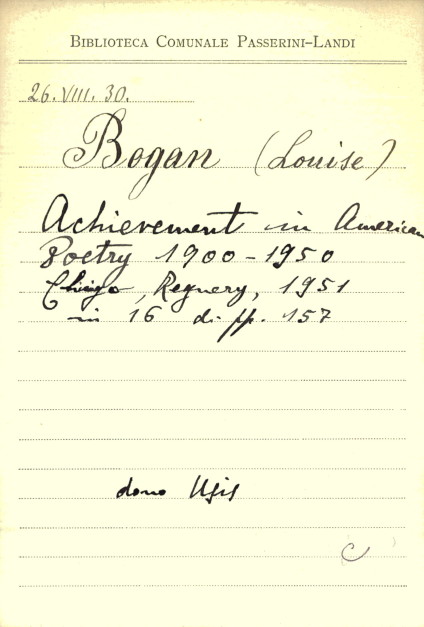 BIBLIOTECA COMUNALE PASSERINI-LANDI
26.VIII.30.
Bogan (Louise)
Achievement in American
Poetry 1900-1950
Chicago, Regnery, 1951
in 16 di pp. 157
dono Usis
C